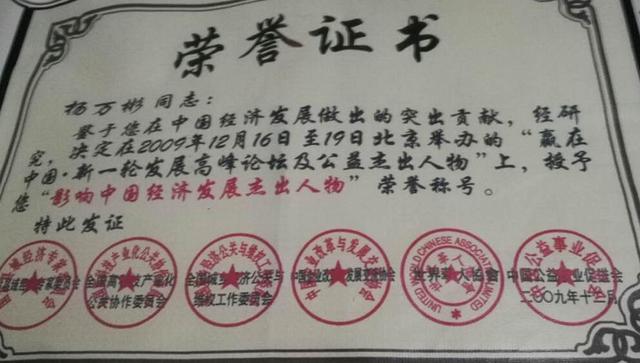 荣誉证书
杨万彬同志：
鉴于您在中国经济发展做出的突出贡献，经研
究，决定在2009年12月16日至19日北京举办的“赢在
中国·新一轮发展高峰论坛及公益杰出人物”上，授予
您“影响中国经济发展杰出人物”荣誉称号。
特此发证
公共协作委员会
维权工作委员会
世界华人协会
UNITED WORLD CHINESE ASSOCIATION LIMITED
中国公益事业促进会
二00九年十二月